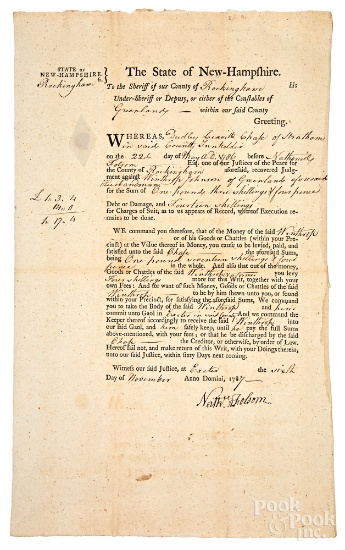 STATE of
NEW-HAMPSHIRE.
Rockingham
The State of New-Hampshire.
To the Sheriff of our County of Rockingham his
Under-Sheriff or Deputy, or either of the Constables of
Greenland within our said County
Greeting.
WHEREAS, Dudley Chase of Stratham
in said County Innholder
on the 22d day of May AD. 1786 before Nathaniel
Folsom Esq; one of our Justices of the Peace for
the County of Rockingham aforesaid, recovered Judgment
against Winthrop Johnson of Greenland aforesaid
for the Sum of One pounds three shillings & four pence
Debt or Damage, and Fourteen shillings
for Charges of Suit, as to us appears of Record, whereof Execution remains
to be done.
£1.3.4
14.0
1.17.4
WE command you therefore, that of the Money of the said Winthrop
or of his Goods or Chattles (within your Precinct)
at the Value thereof in Money, you cause to be levied, paid, and
satisfied unto the said Chase the aforesaid Sums,
being One pound seventeen shillings & four
pence in the whole. And also that out of the money,
Goods or Chattles of the said Winthrop you levy
four shillings more for this Writ, together with your
own Fees: And for want of such Money, Goods or Chattles of the said
Winthrop to be by him shewn unto you, or found
within your Precinct, for satisfying the aforesaid Sums, We command
you to take the Body of the said Winthrop and him
commit unto Gaol in Exeter And we command the
Keeper thereof accordingly to receive the said Winthrop into
our said Gaol, and him safely keep, until he pay the full Sums
above-mentioned, with your fees; or that he be discharged by the said
Chase the Creditor, or otherwise, by order of Law.
Hereof fail not, and make return of this Writ, with your Doings therein,
unto our said Justice, within sixty Days next coming.
Witness our said Justice, at Exeter the sixth
Day of November Anno Domini, 1787.
Nathl. Folsom
Pook
&
Pook
Inc.